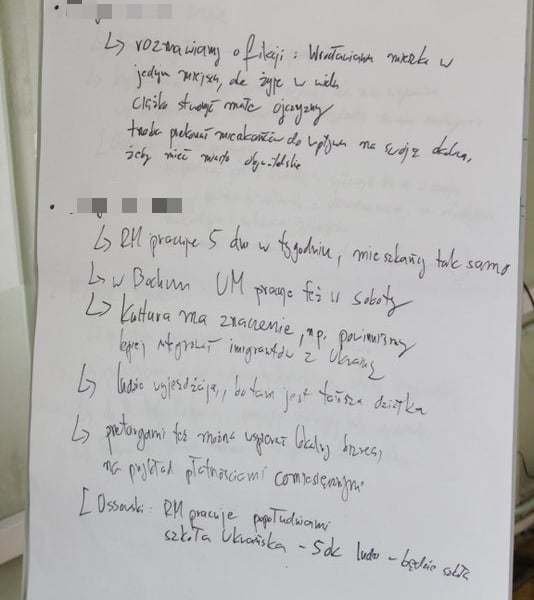 ↳ rozmawiamy o fikcji: Wrocławianin mieszka w
jednym miejscu, ale żyje w wielu
Ciężko stworzyć małe ojczyzny
trzeba przekonać mieszkańców do wpływu na swoją okolicę,
żeby mieć miasto obywatelskie
↳ RM pracuje 5 dni w tygodniu, mieszkańcy tak samo
↳ w Bochum UM pracuje też w soboty
↳ Kultura ma znaczenie, np. powinniśmy
lepiej integrować imigrantów z Ukrainy
↳ ludzie wyjeżdżają, bo tam jest tańsza działka
↳ przetargami też można wspierać lokalny biznes,
na przykład płatnościami comiesięcznymi
[Ossowski: RM pracuje popołudniami
szkoła Ukraińska – 5 dk ludzi – będzie szkoła